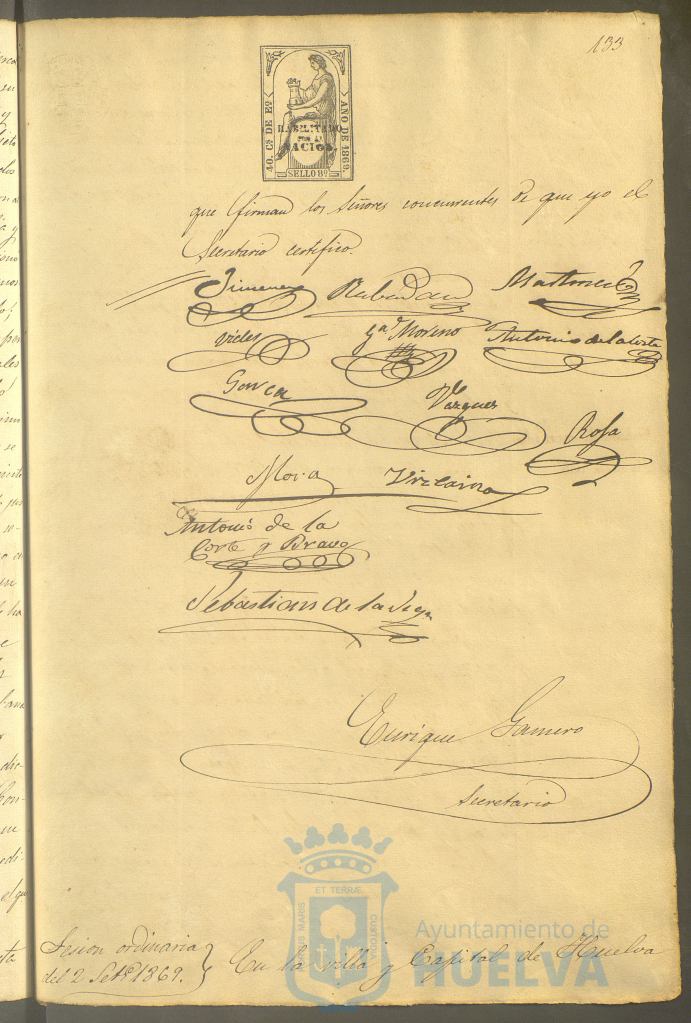 133
40. Cs. DE Eo.
HABILITADO
POR LA
NACION.
AÑO DE 1869.
SELLO 8º
que firman los Señores concurrentes de que yo el
Secretario certifico.
Jimenez Rabadan Martinez
Vieles Gª Moreno Antonio de la Corte
Garcia Vazquez
Rosa
Mora Vizcaino
Antonio de la
Corte y Bravo
Sebastian de la Vega
Enrique Gamero
Secretario
Sesion ordinaria
del 2 Setre. 1869.
En la villa y Capital de Huelva
ET TERRÆ
MARIS
CUSTODIA
Ayuntamiento de
HUELVA